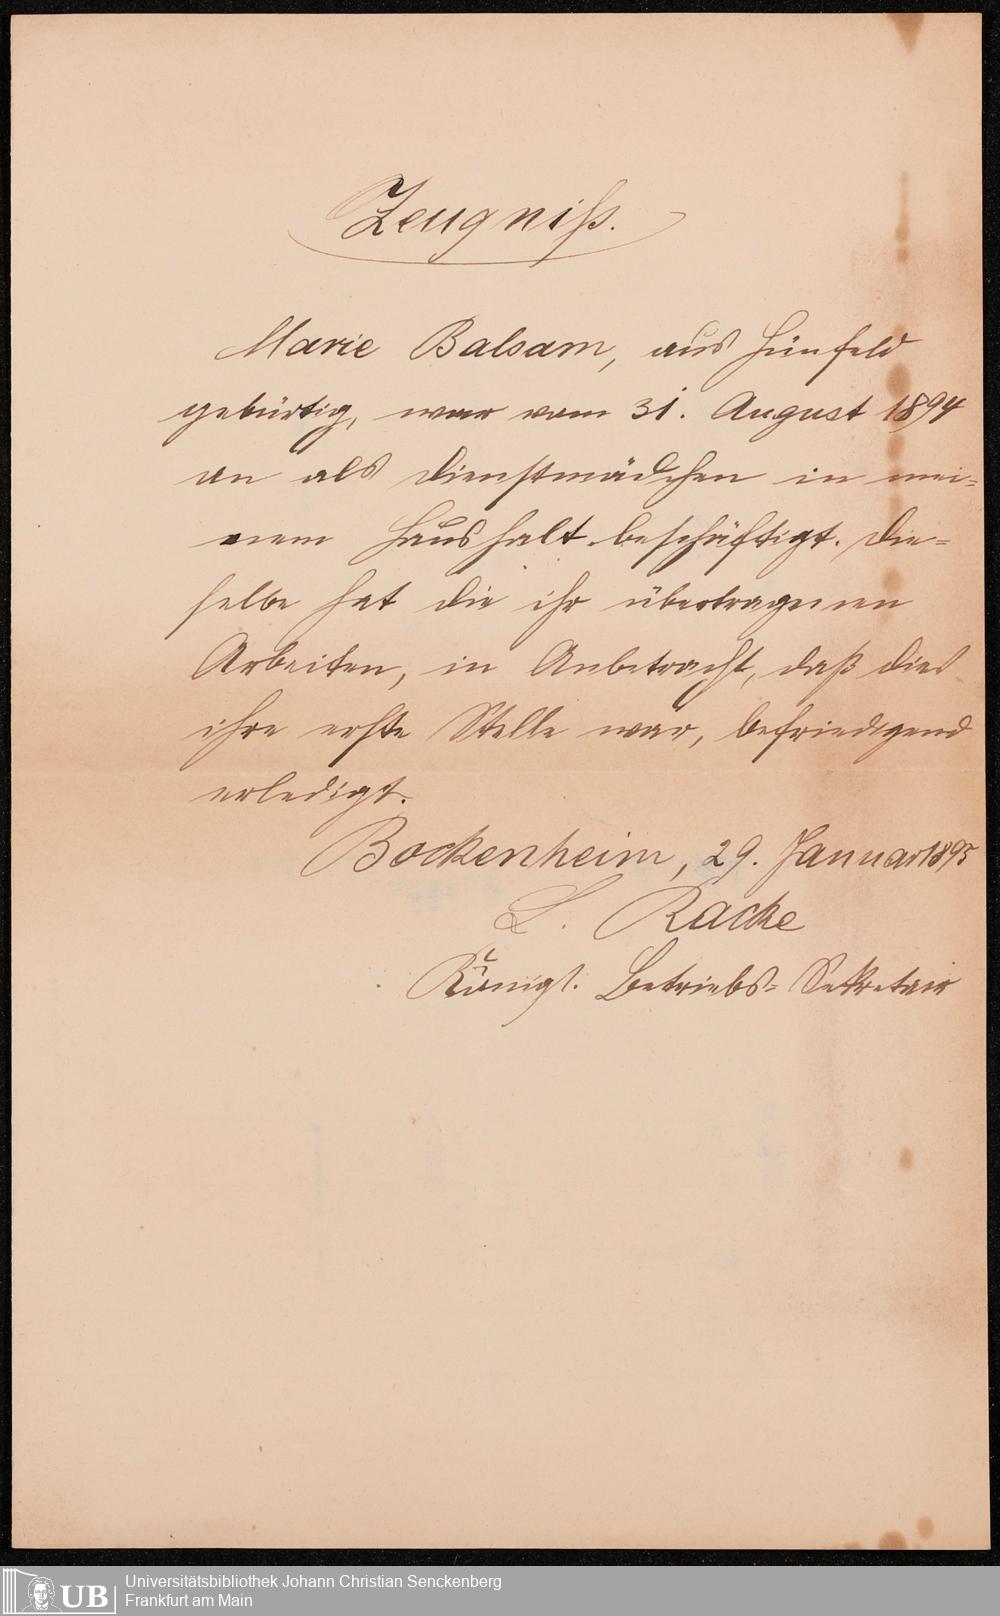 Zeugniß.
Marie Balsam, aus Hünfeld
gebürtig, war vom 31. August 1894
an als Dienstmädchen in mei=
nem Haushalt beschäftigt. Die=
selbe hat die ihr übertragenen
Arbeiten, in Anbetracht, daß dies
ihre erste Stelle war, befriedigend
erledigt.
Bockenheim, 29. Januar 1895
L. Racke
Königl. Betriebs= Sekretair
UB
Universitätsbibliothek Johann Christian Senckenberg
Frankfurt am Main